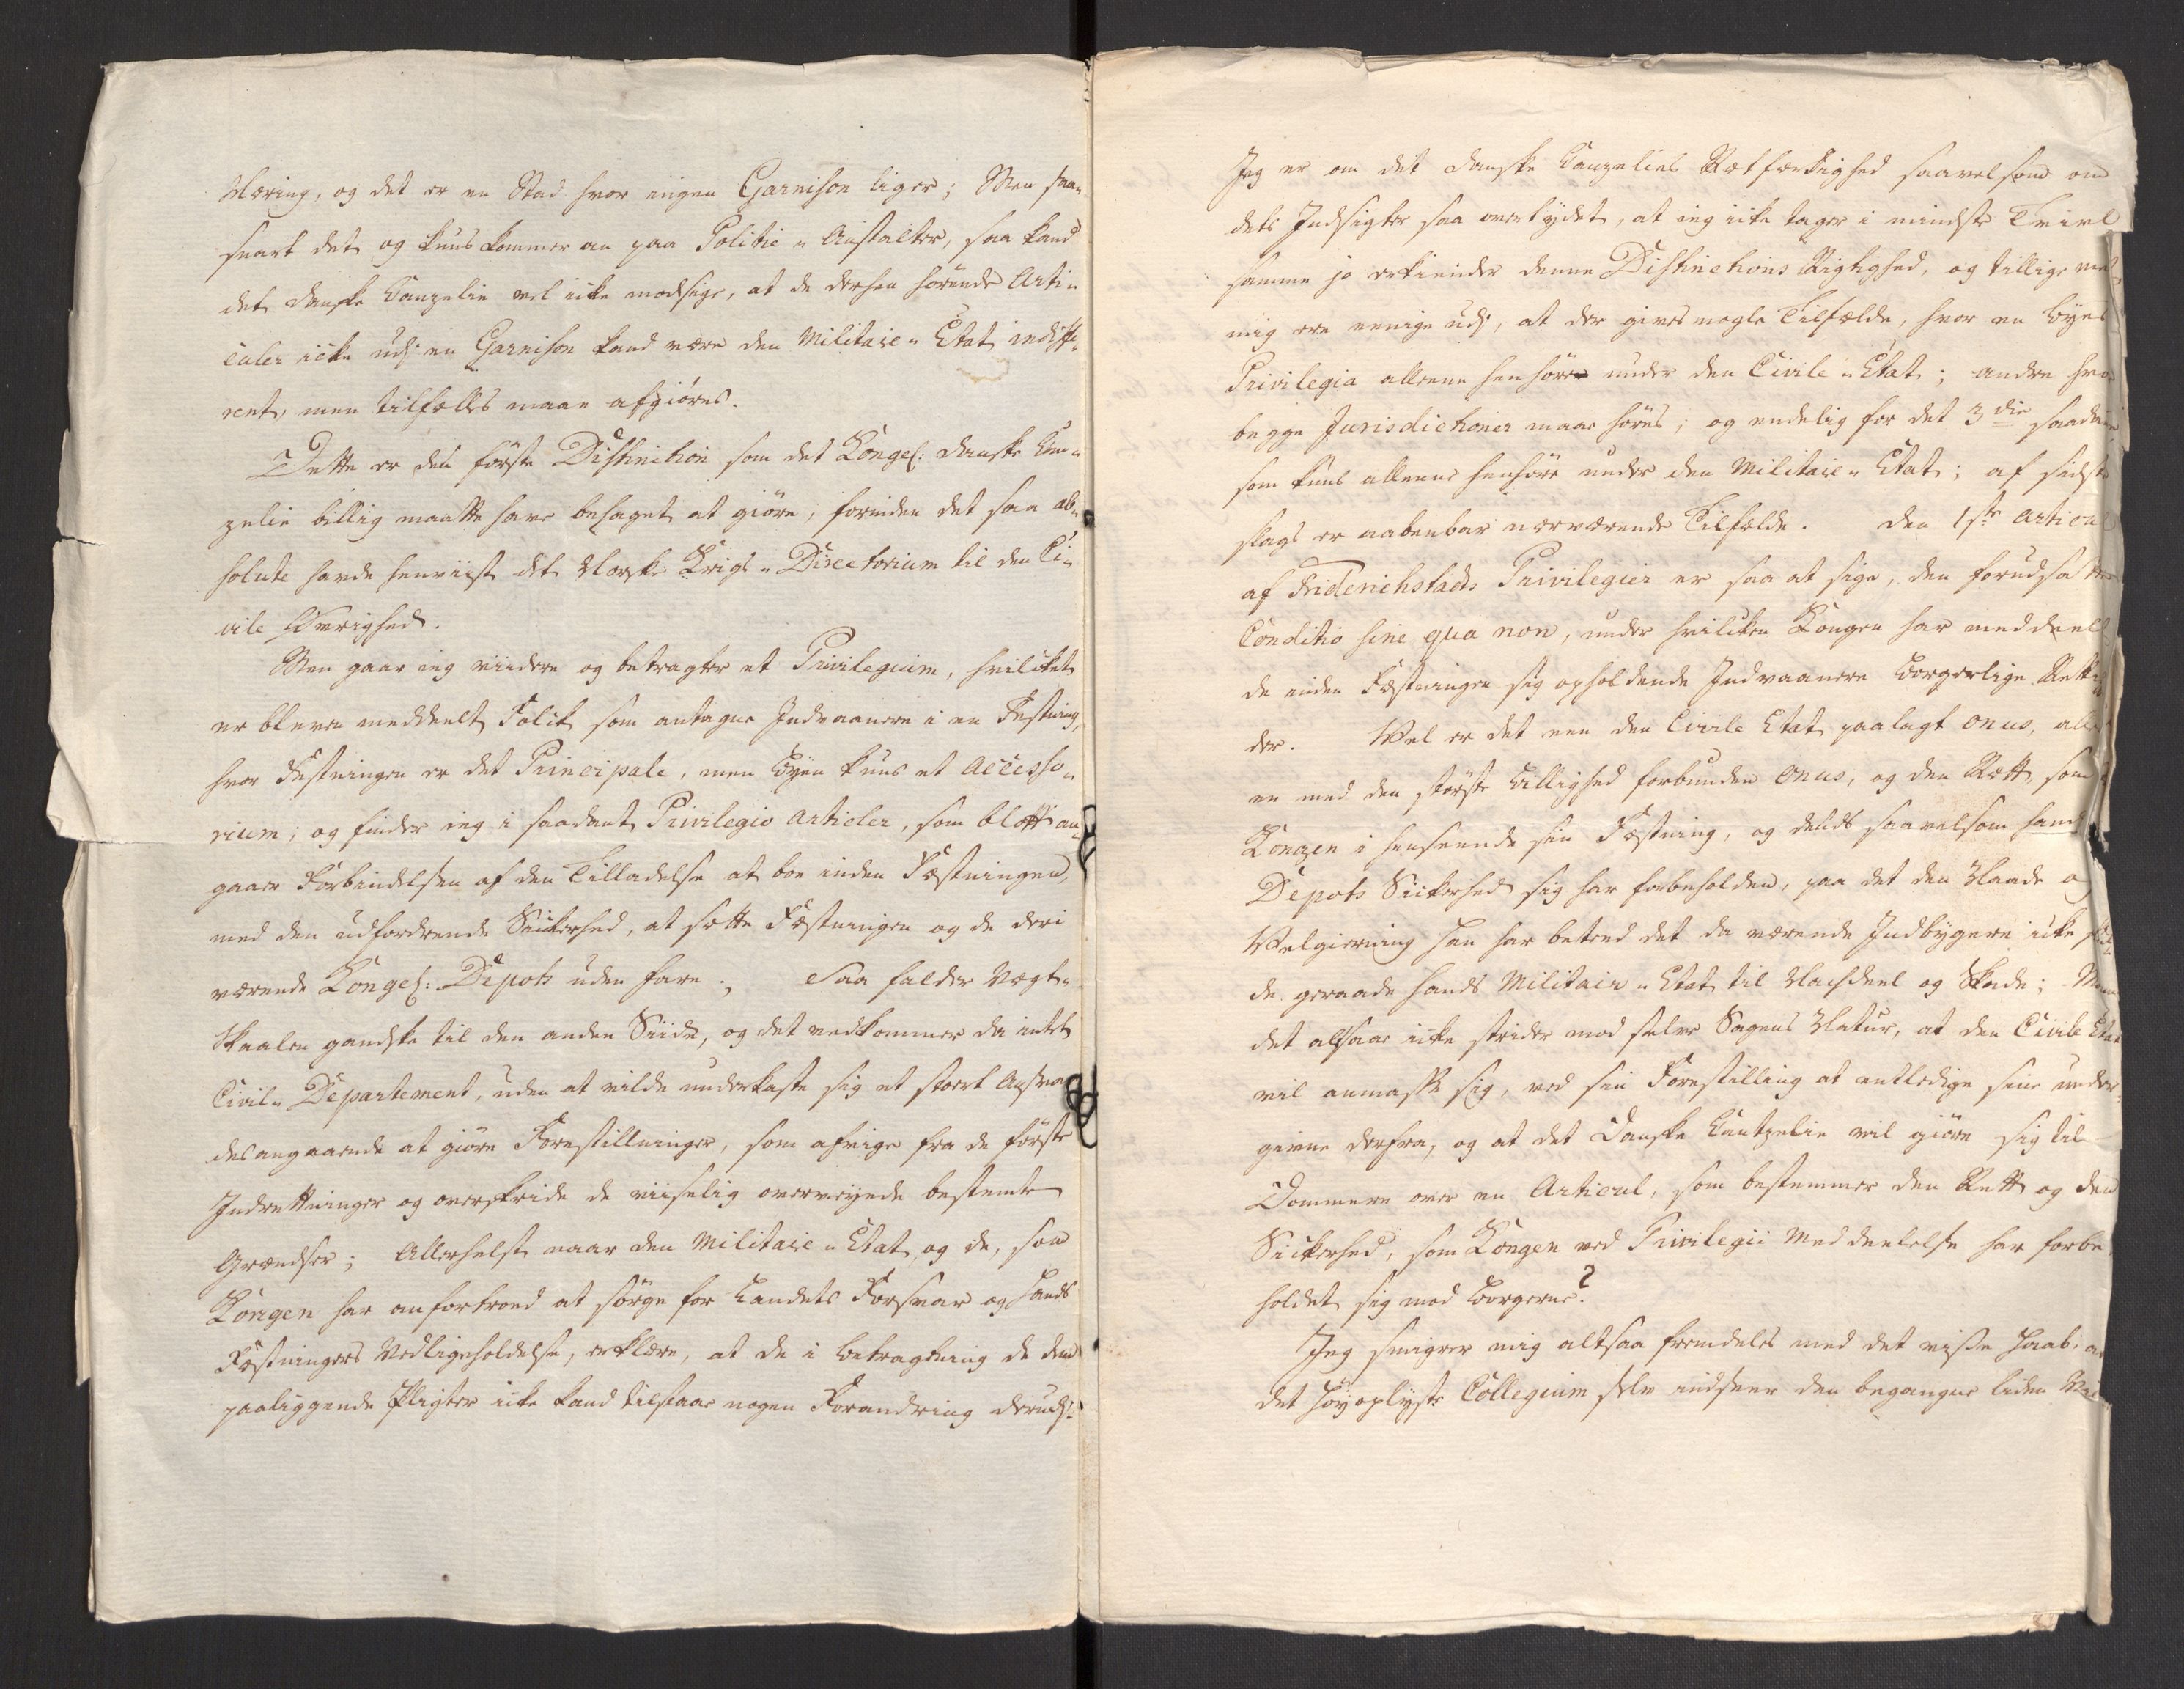 Næring, og det er en Stad hvor ingen Garnison liger; Men saa-
snart det og kuns kommer an paa Politie-Anstalter, saa kand
det danske Canzelie vel icke modsige, at de derhen hørende Arti-
culer icke udj en Garnison kand være den Militaire-Etat indiffe-
rent, men tilfælles maae afgiøres.
Dette er den første Distinction som det Kongel: danske Can-
zelie billig maatte have behaget at giøre, forinden det saa ab-
solute havde henviist det Norske Krigs-Directorium til den Ci-
vile Øvrighed.
Men gaar ieg viidere og betragter et Privilegium, hvilcket
er bleven meddeelt Folck som antagne Indvaanere i en Festning,
hvor Festningen er det Principale, men Byen kuns et Accesso-
rium; og finder ieg i saadant Privilegio Articler, som blott an-
gaaer Forbindelsen af den Tilladelse at boe inden Fæstningen,
med den udfordrende Sickerhed, at sætte Fæstningen og de deri
værende Kongel: Depots uden fare; Saa falder Vægt-
Skaalen gandske til den anden Siide, og det vedkommer da intet
Civil-Departement, uden at vilde underkaste sig et stoert Ansvar
des angaaende at giøre Forestillninger, som afvige fra de første
Indrettninger og overskride de viiselig overveyede bestemte
Grændser; Allerhelst naar den Militaire-Etat og de, som
Kongen har anfortroed at sørge for Landets Forsvar og hands
Fæstningers Vedligeholdelse, erklære, at de i betragtning de dem
paaliggende Pligter icke kand tilstaae nogen Forandring derudj.
Jeg er om det danske Canzelies Rætfærdighed saavelsom om
dets Indsigter saa overtydet, at ieg icke tager i mindste Tvivl
samme jo erkiender denne Distinctions Rigtighed, og tillige med
mig ere eenige udj, at der gives nogle Tilfælde, hvor en Byes
Privilegia alleene henhører under den Civile-Etat; andre hvor
begge Jurisdictioner maae høres; og endelig for det 3die saadanne
som kuns alleene henhøre under den Militaire-Etat; af sidste
slags er aabenbar nærværende Tilfælde. Den 1ste Articul
af Friderichstads Privilegier er saa at sige, den forudsatte
Conditio sine qua non, under hvilcken Kongen har meddeelt
de inden Fæstningen sig opholdende Indvaanere borgerlige Rettig-
der. Vel er det een den Civile Etat paalagt onus, alle
en med den største billighed forbunden onus, og den Rætt som
Kongen i henseende sin Fæstning, og dends saavelsom hands
Depots Sickerhed sig har forbeholden, paa det den Naade og
Velgierning han har beteed det da værende Indbygere icke skul-
de geraade hands Militaire-Etat til Nachdeel og Skade; Mon
det altsaae icke strider mod selve Sagens Natur, at den Civile Etat
vil anmasse sig, ved sin Forestilling at entledige sine under-
givne derfra, og at det Danske Cantzelie vil giøre sig til
Dommere over en Articul, som bestemmer den Rett og den
Sickerhed, som Kongen ved Privilegii Meddeelelse har forbe
holdet sig mod borgerne?
Jeg smigrer mig altsaa fremdeles med det visse Haab, at
det Høyoplyste Collegium selv indseer den begangne liden